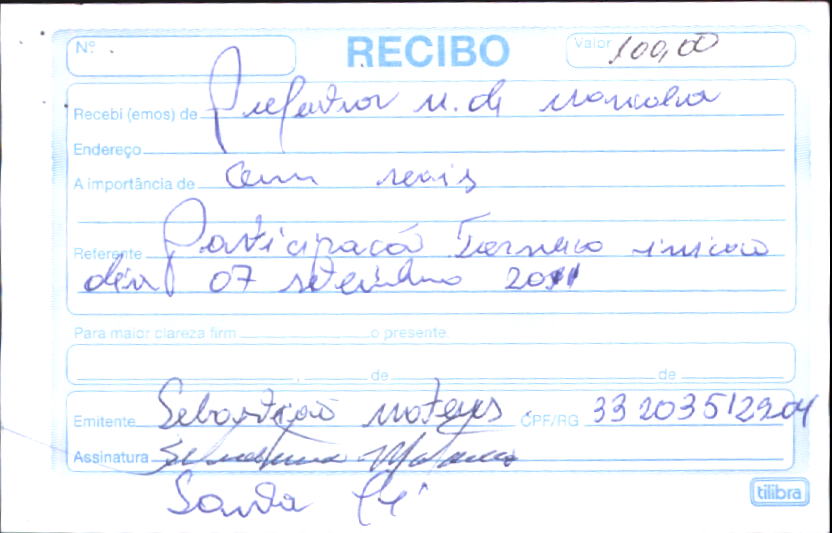 Nº.
RECIBO
Valor 100,00
Recebi (emos) de Prefeitura M. de
Endereço
A importância de Cem reais
Referente Participação Torneio inicio
dia 07 setembro 2011
Para maior clareza firm o presente.
, de de
Emitente Sebastião Mateus CPF/RG 33203512904
Assinatura
Santa Fé
tilibra